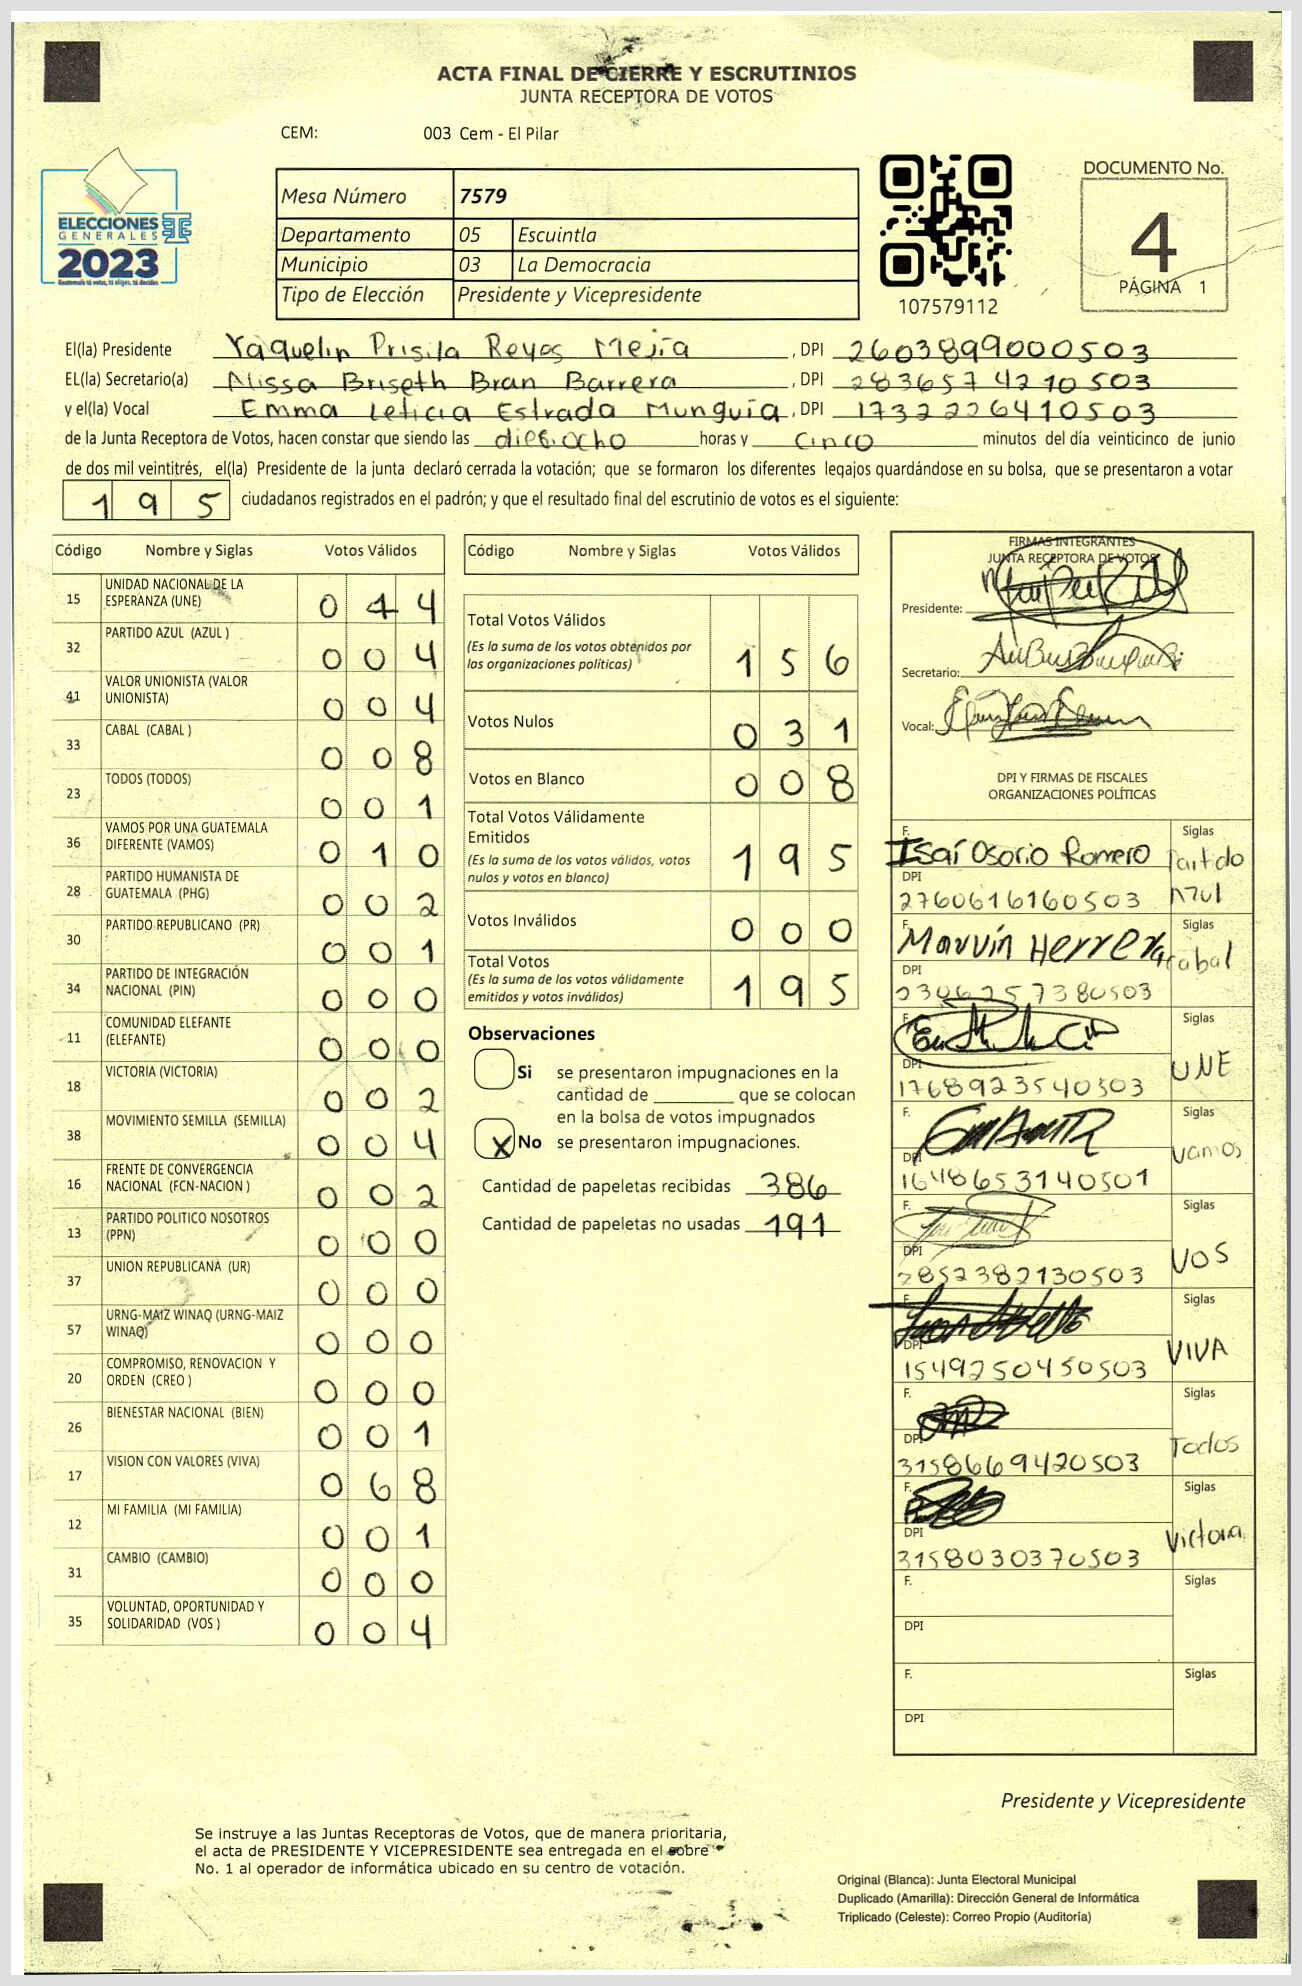 ACTA FINAL DE CIERRE Y ESCRUTINIOS
JUNTA RECEPTORA DE VOTOS
CEM: 003 Cem - El Pilar
ELECCIONES
GENERALES
2023
Guatemala tú votas, tú eliges, tú decides
Mesa Número 7579
Departamento 05 Escuintla
Municipio 03 La Democracia
Tipo de Elección Presidente y Vicepresidente
107579112
DOCUMENTO No.
4
PÁGINA 1
El(la) Presidente Yaquelin Prisila Reyes Mejía , DPI 2603899000503
EL(la) Secretario(a) Alissa Briseth Bran Barrera , DPI 2836574210503
y el(la) Vocal Emma Leticia Estrada Munguía , DPI 1732226410503
de la Junta Receptora de Votos, hacen constar que siendo las dieciocho horas y cinco minutos del día veinticinco de junio
de dos mil veintitrés, el(la) Presidente de la junta declaró cerrada la votación; que se formaron los diferentes legajos guardándose en su bolsa, que se presentaron a votar
195 ciudadanos registrados en el padrón; y que el resultado final del escrutinio de votos es el siguiente:
Código Nombre y Siglas Votos Válidos
15 UNIDAD NACIONAL DE LA ESPERANZA (UNE) 044
32 PARTIDO AZUL (AZUL ) 004
41 VALOR UNIONISTA (VALOR UNIONISTA) 004
33 CABAL (CABAL ) 008
23 TODOS (TODOS) 001
36 VAMOS POR UNA GUATEMALA DIFERENTE (VAMOS) 010
28 PARTIDO HUMANISTA DE GUATEMALA (PHG) 002
30 PARTIDO REPUBLICANO (PR) 001
34 PARTIDO DE INTEGRACIÓN NACIONAL (PIN) 000
11 COMUNIDAD ELEFANTE (ELEFANTE) 000
18 VICTORIA (VICTORIA) 002
38 MOVIMIENTO SEMILLA (SEMILLA) 004
16 FRENTE DE CONVERGENCIA NACIONAL (FCN-NACION ) 002
13 PARTIDO POLITICO NOSOTROS (PPN) 000
37 UNION REPUBLICANA (UR) 000
57 URNG-MAIZ WINAQ (URNG-MAIZ WINAQ) 000
20 COMPROMISO, RENOVACION Y ORDEN (CREO ) 000
26 BIENESTAR NACIONAL (BIEN) 001
17 VISION CON VALORES (VIVA) 068
12 MI FAMILIA (MI FAMILIA) 001
31 CAMBIO (CAMBIO) 000
35 VOLUNTAD, OPORTUNIDAD Y SOLIDARIDAD (VOS ) 004
Código Nombre y Siglas Votos Válidos
Total Votos Válidos 156
(Es la suma de los votos obtenidos por
las organizaciones políticas)
Votos Nulos 031
Votos en Blanco 008
Total Votos Válidamente
Emitidos 195
(Es la suma de los votos válidos, votos
nulos y votos en blanco)
Votos Inválidos 000
Total Votos 195
(Es la suma de los votos válidamente
emitidos y votos inválidos)
Observaciones
Si se presentaron impugnaciones en la
cantidad de ________ que se colocan
en la bolsa de votos impugnados
X No se presentaron impugnaciones.
Cantidad de papeletas recibidas 386
Cantidad de papeletas no usadas 191
FIRMAS INTEGRANTES
JUNTA RECEPTORA DE VOTOS
Presidente:
Secretario:
Vocal:
DPI Y FIRMAS DE FISCALES
ORGANIZACIONES POLÍTICAS
F. Isaí Osorio Romero Siglas Partido Azul
DPI 2760616160503
F. Marvin Herrera Siglas Cabal
DPI 2306257380503
F. Siglas UNE
DPI 1768923540503
F. Siglas Vamos
DPI 1648653140501
F. Siglas VOS
DPI 2852382130503
F. Siglas VIVA
DPI 1549250450503
F. Siglas Todos
DPI 3158669420503
F. Siglas Victoria
DPI 3158030370503
F. Siglas
DPI
F. Siglas
DPI
Presidente y Vicepresidente
Se instruye a las Juntas Receptoras de Votos, que de manera prioritaria,
el acta de PRESIDENTE Y VICEPRESIDENTE sea entregada en el sobre
No. 1 al operador de informática ubicado en su centro de votación.
Original (Blanca): Junta Electoral Municipal
Duplicado (Amarilla): Dirección General de Informática
Triplicado (Celeste): Correo Propio (Auditoría)